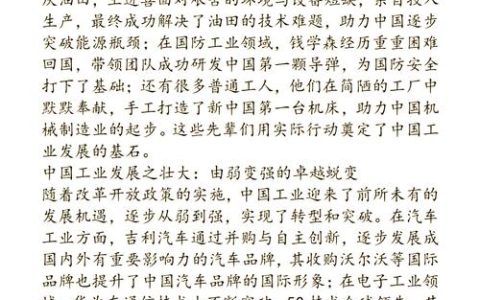 生产，最终成功解决了油田的技术难题，助力中国逐步
突破能源瓶颈；在国防工业领域，钱学森经历重重困难
回国，带领团队成功研发中国第一颗导弹，为国防安全
打下了基础；还有很多普通工人，他们在简陋的工厂中
默默奉献，手工打造了新中国第一台机床，助力中国机
械制造业的起步。这些先辈们用实际行动奠定了中国工
业发展的基石。
中国工业发展之壮大：由弱变强的卓越蜕变
随着改革开放政策的实施，中国工业迎来了前所未有的
发展机遇，逐步从弱到强，实现了转型和突破。在汽车
工业方面，吉利汽车通过并购与自主创新，逐步发展成
国内外有重要影响力的汽车品牌，其收购沃尔沃等国际
品牌也提升了中国汽车品牌的国际形象；在电子工业领